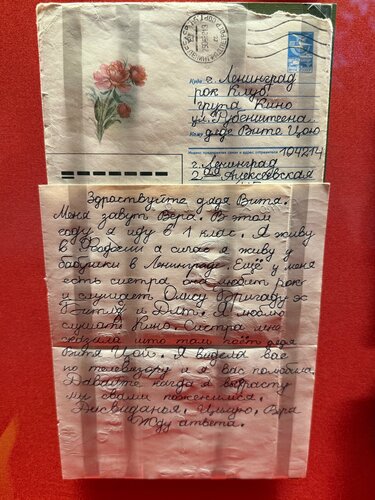 Куда г. Ленинград
рок Клуб
група Кино
ул. Рубенштеена
Кому дяде Вите Цою
Индекс предприятия связи и адрес отправителя 104214
г. Ленинград
2-Алексеевская
Здраствуйте дядя Витя.
Меня завут Вера. В этом
году я иду в 1 клас. Я живу
в Феодосии а сичас я живу у
бабушки в Ленинграде. Ещё у меня
есть систра она любит рок
и слушает Алису Бригаду х
Битлз и Ддт. Я люблю
слушать Кино. Систра мне
сказала што там поёт дядя
Витя Цой. Я видела вас
по телевизору и я вас полюбила.
Давайте когда я вырасту
мы свами поженимся.
Дасвиданья. Цылую. Вера
Жду ответа.